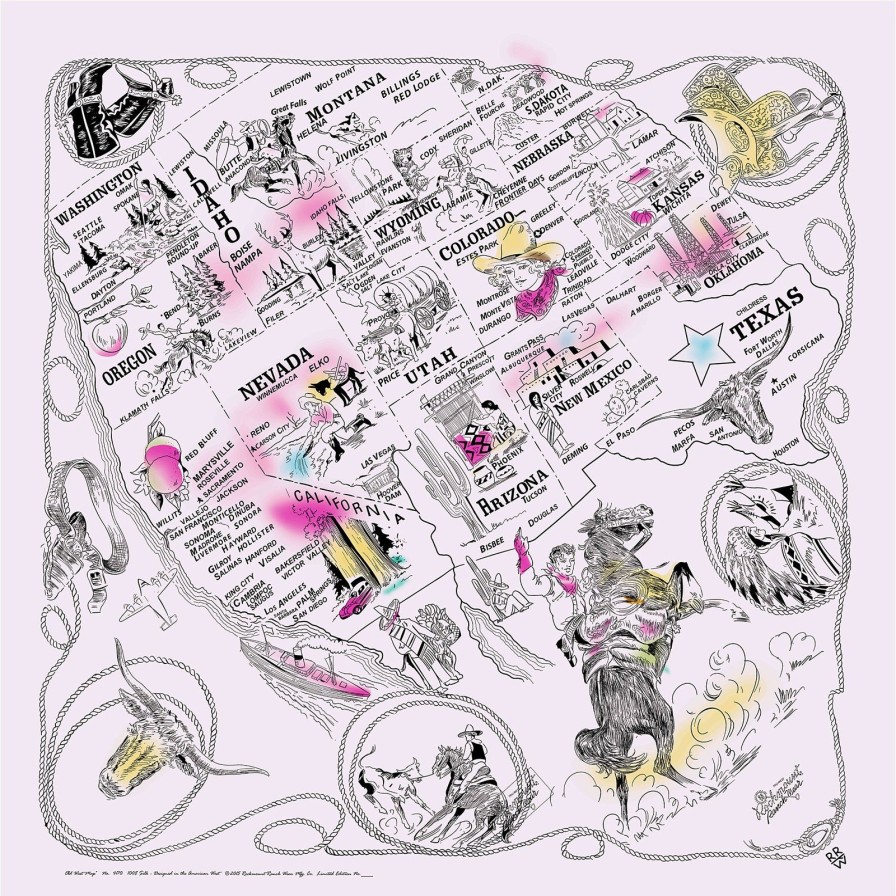 LEWISTOWN
WOLF POINT
MONTANA
BILLINGS
RED LODGE
Great Falls
HELENA
MISSOULA
BUTTE
ANACONDA
LIVINGSTON
N.DAK.
DEADWOOD
S.DAKOTA
RAPID CITY
HOT SPRINGS
BELLE
FOURCHE
CUSTER
SHERIDAN
GILLETTE
CODY
YELLOWSTONE
PARK
WYOMING
LARAMIE
RAWLINS
EVANSTON
CHEYENNE
FRONTIER DAYS
NEBRASKA
GORDON
LINCOLN
LAMAR
ATCHISON
TOPEKA
KANSAS
WICHITA
GOODLAND
DODGE CITY
WASHINGTON
OMAK
SPOKANE
SEATTLE
TACOMA
YAKIMA
ELLENSBURG
DAYTON
PENDLETON
ROUND-UP
LEWISTON
IDAHO
IDAHO FALLS
BOISE
NAMPA
BURLEY
SUN
VALLEY
GOODING
FILER
PORTLAND
BAKER
BEND
BURNS
OREGON
LAKEVIEW
KLAMATH FALLS
SALT LAKE CITY
OGDEN
PROVO
PRICE
UTAH
COLORADO
ESTES PARK
GREELEY
DENVER
COLORADO
SPRINGS
PUEBLO
LEADVILLE
TRINIDAD
MONTROSE
MONTE VISTA
DURANGO
RATON
LAS VEGAS
DEWEY
TULSA
CLAREMORE
OKLAHOMA
WOODWARD
BORGER
AMARILLO
DALHART
CHILDRESS
TEXAS
FORT WORTH
DALLAS
CORSICANA
AUSTIN
PECOS
MARFA
SAN
ANTONIO
HOUSTON
EL PASO
NEVADA
WINNEMUCCA
ELKO
RENO
CARSON CITY
LAS VEGAS
HOOVER
DAM
GRAND CANYON
PRESCOTT
WINSLOW
PHOENIX
ARIZONA
TUCSON
BISBEE
DOUGLAS
GRANTS PASS
ALBUQUERQUE
SILVER
CITY
ROSWELL
NEW MEXICO
CARLSBAD
CAVERNS
DEMING
RED BLUFF
MARYSVILLE
ROSEVILLE
SACRAMENTO
JACKSON
WILLITS
VALLEJO
SAN FRANCISCO
SONOMA
MONTICELLO
DINUBA
LIVERMORE
SONORA
HAYWARD
GILROY
HOLLISTER
SALINAS
HANFORD
VISALIA
CALIFORNIA
BAKERSFIELD
VICTOR VALLEY
KING CITY
CAMBRIA
LOMPOC
SAUGUS
LOS ANGELES
SANTA
BARBARA
PALM
SPRINGS
SAN DIEGO
Rockmount
Ranch Wear
RRW
Old West Map™ No. 4070 100% Silk - Designed in the American West ©2005 Rockmount Ranch Wear Mfg. Co. Limited Edition No.